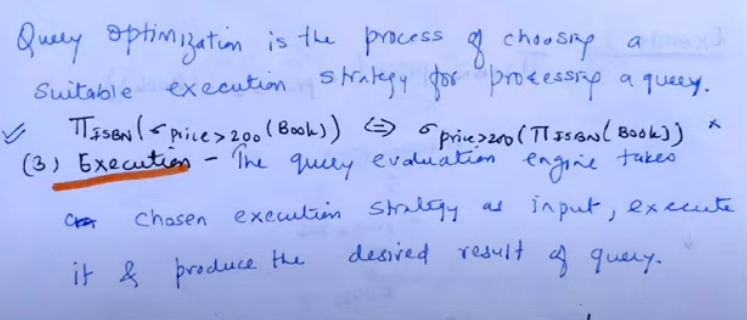 Query optimization is the process of choosing a
suitable execution strategy for processing a query.
✓ π ISBN (σ price>200 (Book)) ⇔ σ price>200 (π ISBN (Book)) ×
(3) Execution - The query evaluation engine takes
chosen execution strategy as input, execute
it & produce the desired result of query.